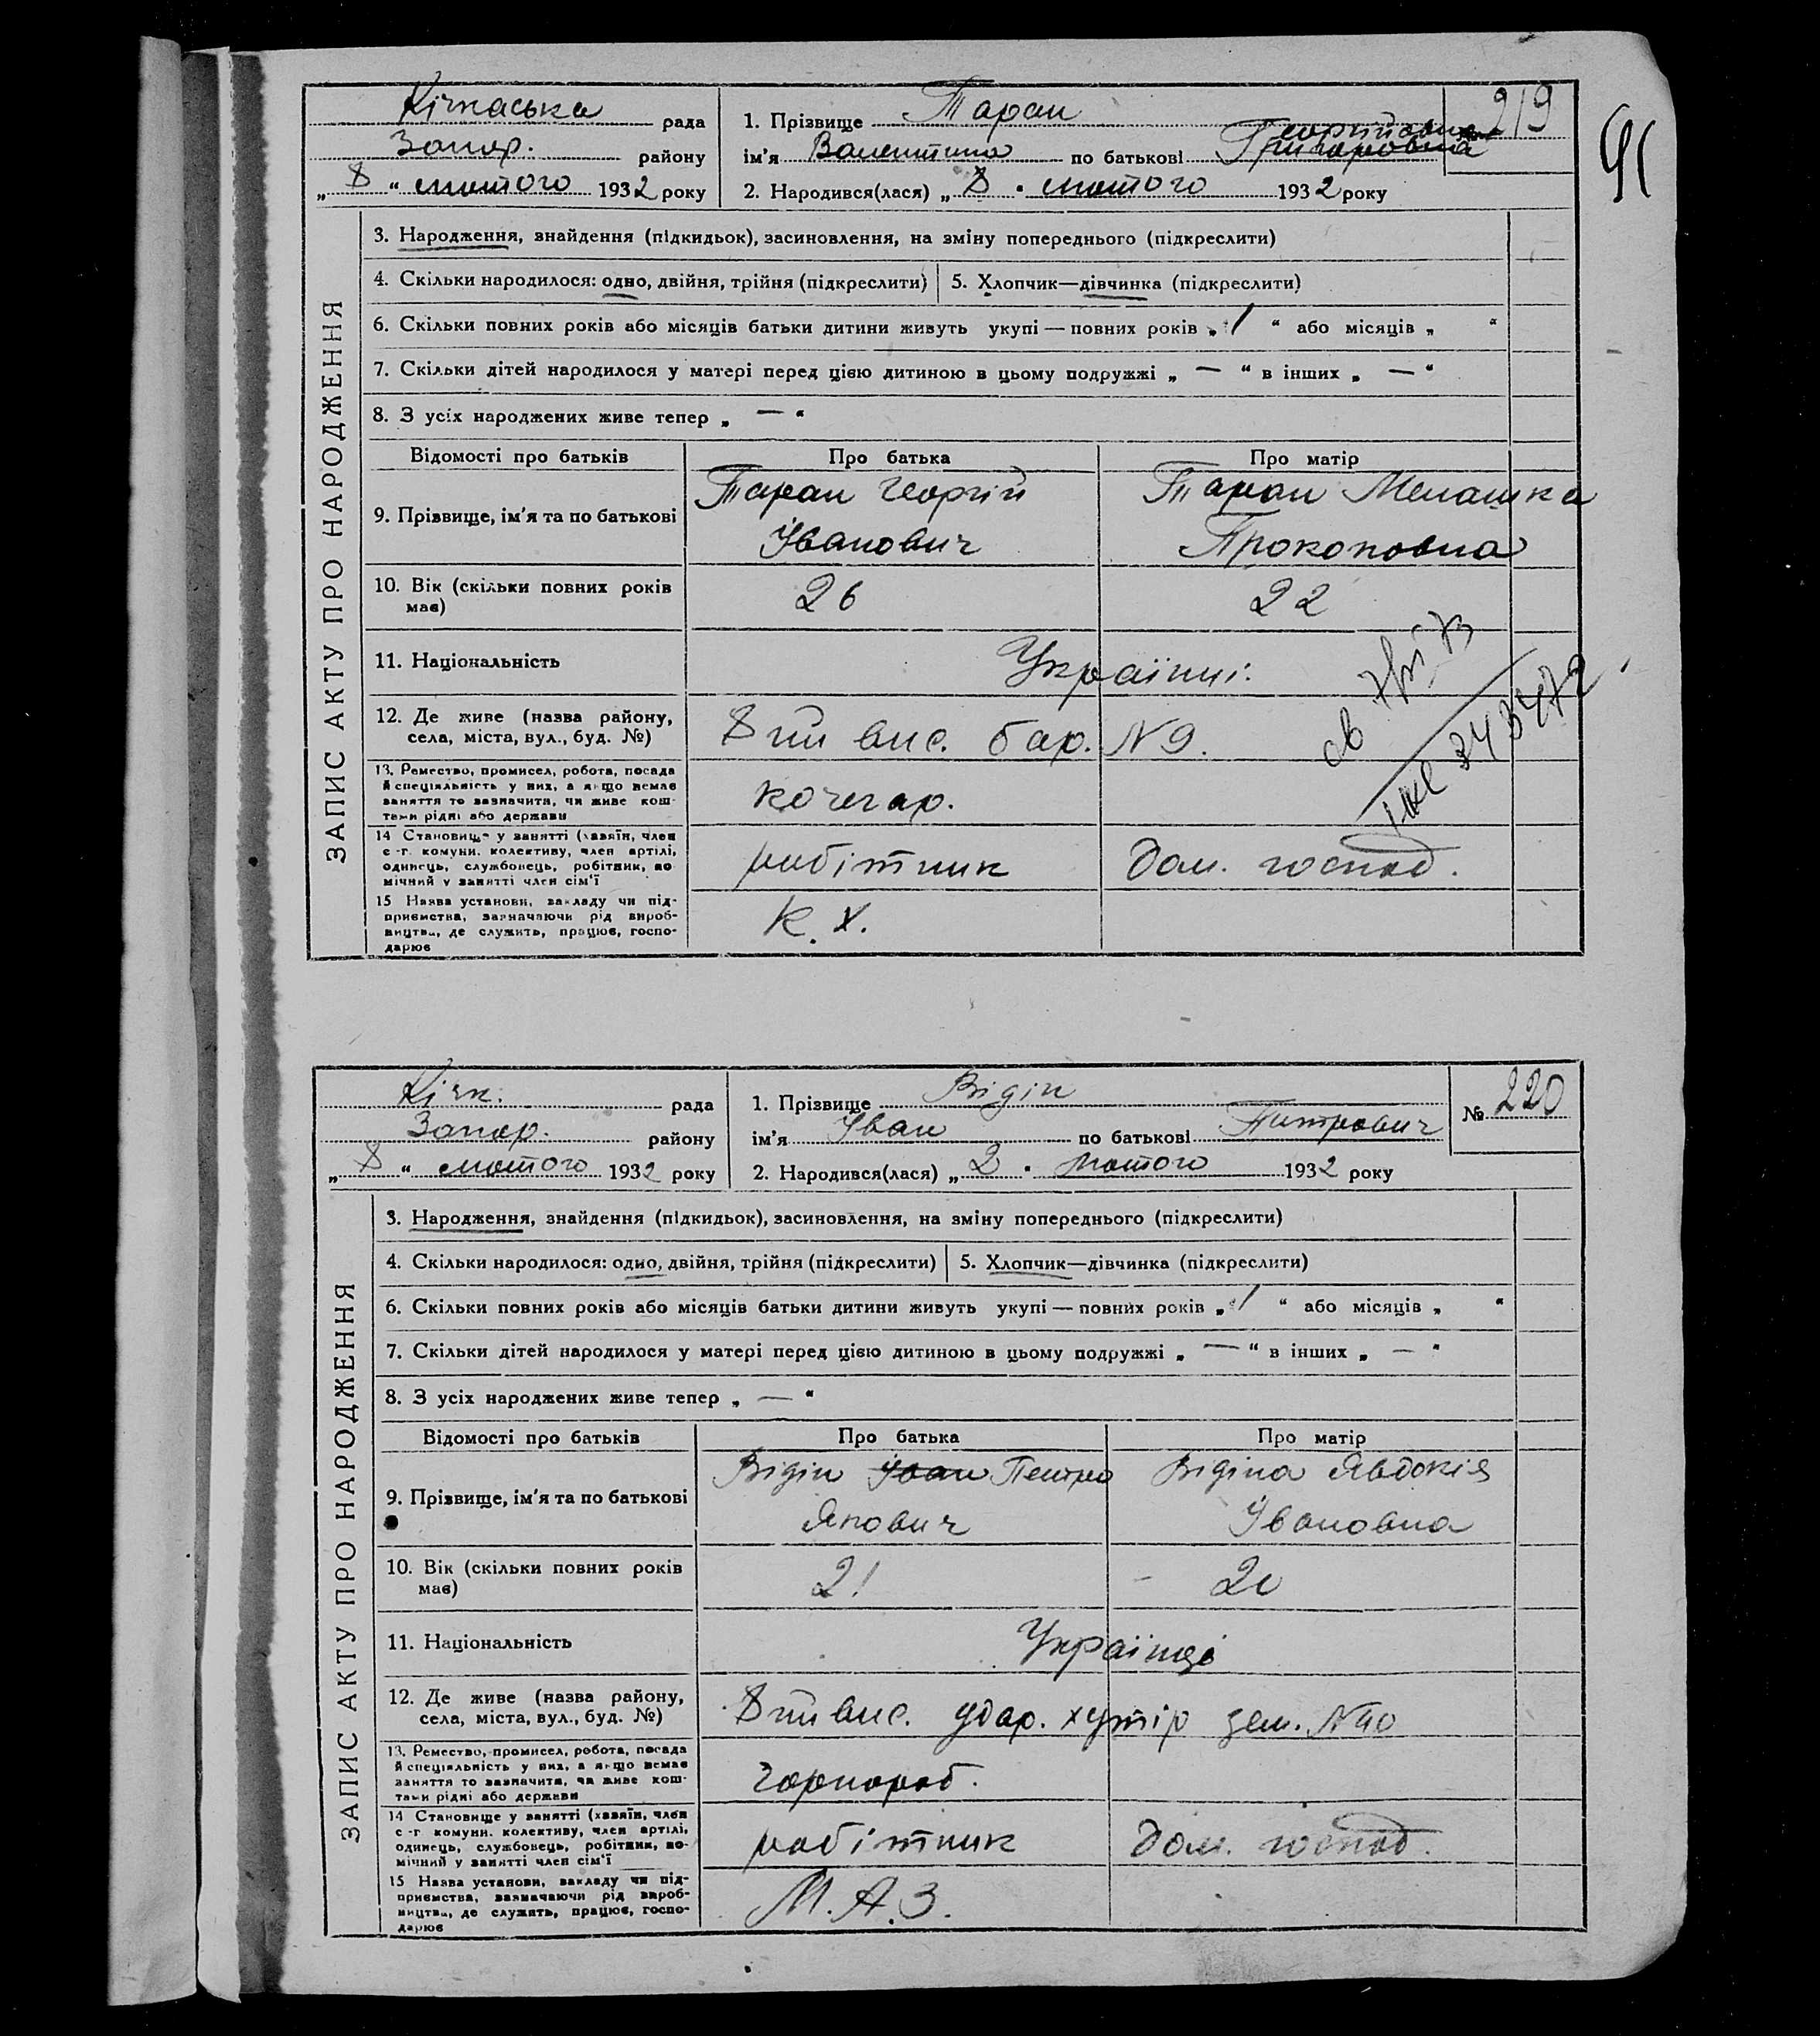 Кічкаська рада
Запор. району
„ 8 “ лютого 1932 року
1. Прізвище Таран
ім'я Валентина по батькові Григоровна Георгіївна
2. Народився(лася) „ 8 “ лютого 1932 року
219
ЗАПИС АКТУ ПРО НАРОДЖЕННЯ
3. Народження, знайдення (підкидьок), засиновлення, на зміну попереднього (підкреслити)
4. Скільки народилося: одно, двійня, трійня (підкреслити) 5. Хлопчик—дівчинка (підкреслити)
6. Скільки повних років або місяців батьки дитини живуть укупі — повних років „ 1 “ або місяців „ “
7. Скільки дітей народилося у матері перед цією дитиною в цьому подружжі „ — “ в інших „ — “
8. З усіх народжених живе тепер „ — “
Відомості про батьків Про батька Про матір
9. Прізвище, ім'я та по батькові Таран Георгій Таран Мелашка
Іванович Прокоповна
10. Вік (скільки повних років має) 26 22
11. Національність Українці.
12. Де живе (назва району, села, міста, вул., буд. №) 8 ви вис. бар. N 9.
13. Ремество, промисел, робота, посада й спеціяльність у них, а якщо немає заняття то зазначити, чи живе коштами рідні або держави
кочегар.
14 Становище у занятті (хазяїн, член с.-г. комуни, колективу, член артілі, одинець, службовець, робітник, помічний у занятті член сім'ї
робітник Дом. господ.
15 Назва установи, закладу чи підприємства, зазначаючи рід виробництва, де служить, працює, господарює
К. Х.
Кічк. рада
Запор. району
„ 8 “ лютого 1932 року
1. Прізвище Відін
ім'я Іван по батькові Питрович
2. Народився(лася) „ 2 “ лютого 1932 року
№ 220
ЗАПИС АКТУ ПРО НАРОДЖЕННЯ
3. Народження, знайдення (підкидьок), засиновлення, на зміну попереднього (підкреслити)
4. Скільки народилося: одно, двійня, трійня (підкреслити) 5. Хлопчик—дівчинка (підкреслити)
6. Скільки повних років або місяців батьки дитини живуть укупі — повних років „ 1 “ або місяців „ “
7. Скільки дітей народилося у матері перед цією дитиною в цьому подружжі „ — “ в інших „ — “
8. З усіх народжених живе тепер „ — “
Відомості про батьків Про батька Про матір
9. Прізвище, ім'я та по батькові Відін Іван Петро Відіна Явдокія
Янович Івановна
10. Вік (скільки повних років має) 21 20
11. Національність Українці
12. Де живе (назва району, села, міста, вул., буд. №) вис. удар. хутір зем. N 40
13. Ремество, промисел, робота, посада й спеціяльність у них, а якщо немає заняття то зазначити, чи живе коштами рідні або держави
Чорнороб.
14 Становище у занятті (хазяїн, член с.-г. комуни, колективу, член артілі, одинець, службовець, робітник, помічний у занятті член сім'ї
робітник Дом. господ.
15 Назва установи, закладу чи підприємства, зазначаючи рід виробництва, де служить, працює, господарює
М. А. З.